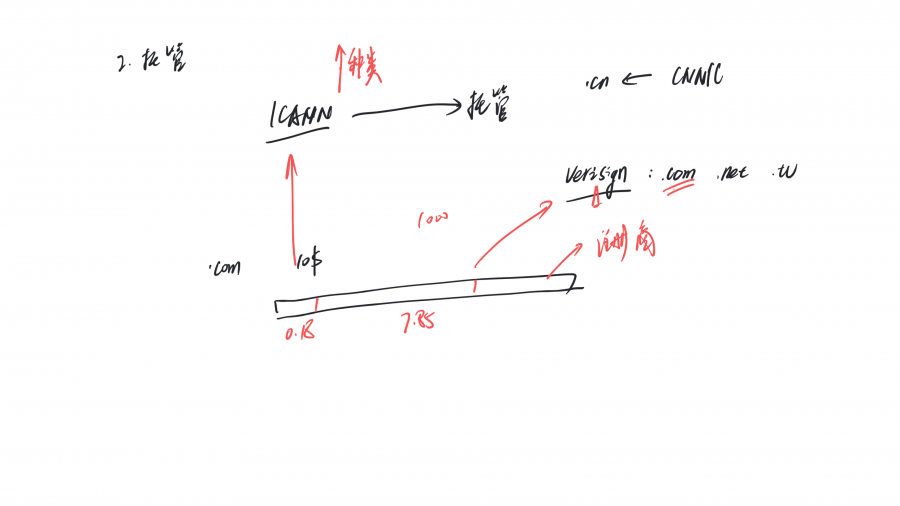 2. 托管
种类
ICANN
托管
.cn ← CNNIC
Verisign : .com .net .tv
1000
注册商
.com 10$
0.18
7.85